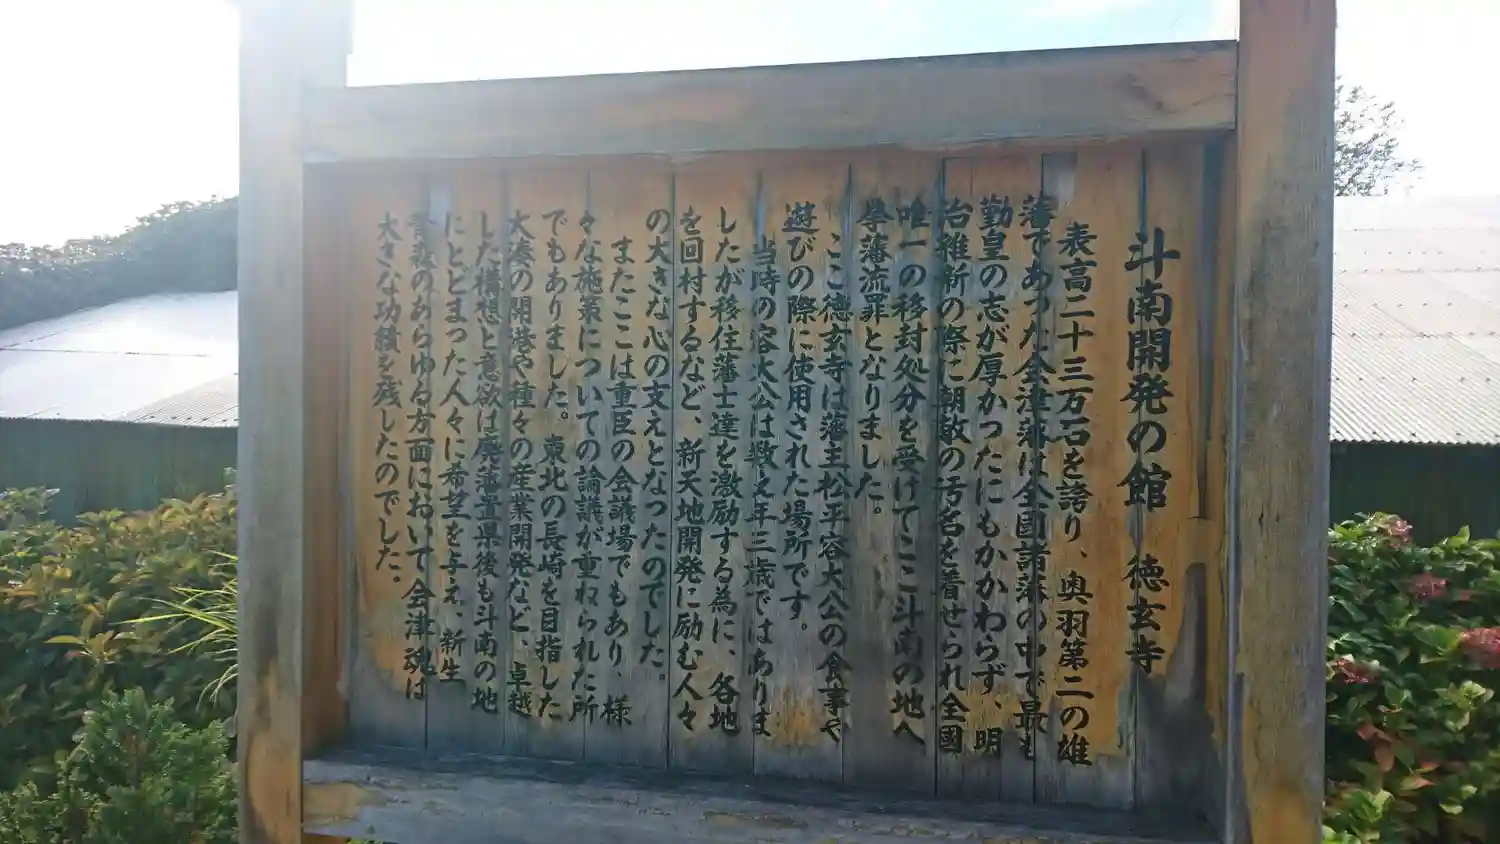 斗南開発の館 徳玄寺
表高二十三万石を誇り、奥羽第二の雄
藩であった会津藩は全国諸藩の中で最も
勤皇の志が厚かったにもかかわらず、明
治維新の際に朝敵の汚名を着せられ全国
唯一の移封処分を受けてここ斗南の地へ
挙藩流罪となりました。
ここ徳玄寺は藩主松平容大公の食事や
遊びの際に使用された場所です。
当時の容大公は数え年三歳ではありま
したが移住藩士達を激励する為に、各地
を回村するなど、新天地開発に励む人々
の大きな心の支えとなったのでした。
またここは重臣の会議場でもあり、様
々な施策についての論議が重ねられた所
でもありました。東北の長崎を目指した
大湊の開港や種々の産業開発など、卓越
した構想と意欲は廃藩置県後も斗南の地
にとどまった人々に希望を与え、新生
青森のあらゆる方面において会津魂は
大きな功績を残したのでした。